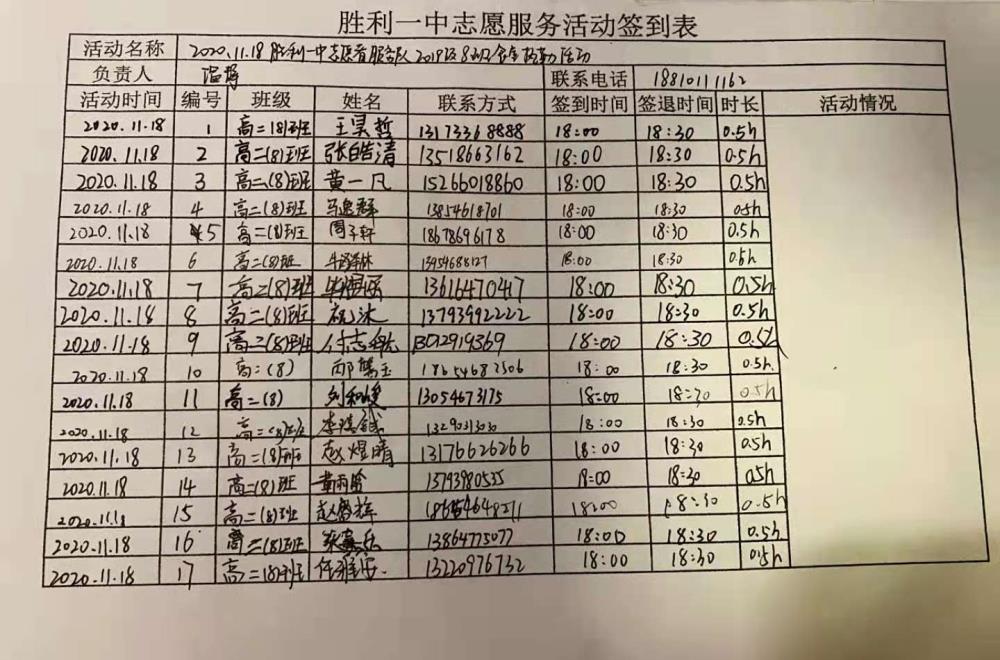 胜利一中志愿服务活动签到表
活动名称 2020.11.18 胜利一中志愿者服务队2019级8班 活动
负责人 联系电话 18810111162
活动时间 编号 班级 姓名 联系方式 签到时间 签退时间 时长 活动情况
2020.11.18 1 高二(8)班 王昊哲 13173368888 18:00 18:30 0.5h
2020.11.18 2 高二(8)班 张皓清 13518663162 18:00 18:30 0.5h
2020.11.18 3 高二(8)班 黄一凡 15266018860 18:00 18:30 0.5h
2020.11.18 4 高二(8)班 13854618701 18:00 18:30 0.5h
2020.11.18 5 高二(8)班 周子轩 18678696178 18:00 18:30 0.5h
2020.11.18 6 高二(8)班 13954688127 18:00 18:30 0.5h
2020.11.18 7 高二(8)班 13616470417 18:00 18:30 0.5h
2020.11.18 8 高二(8)班 13793992222 18:00 18:30 0.5h
2020.11.18 9 高二(8)班 18:00 18:30 0.5h
2020.11.18 10 高二(8) 18654682306 18:00 18:30 0.5h
2020.11.18 11 高二(8) 13054673175 18:00 18:30 0.5h
2020.11.18 12 高二(8)班 18:00 18:30 0.5h
2020.11.18 13 高二(8)班 赵煜晴 13176626266 18:00 18:30 0.5h
2020.11.18 14 高二(8)班 黄雨晗 13793980535 18:00 18:30 0.5h
2020.11.18 15 高二(8)班 18:00 18:30 0.5h
2020.11.18 16 高二(8)班 13864775077 18:00 18:30 0.5h
2020.11.18 17 高二(8)班 13220976732 18:00 18:30 0.5h